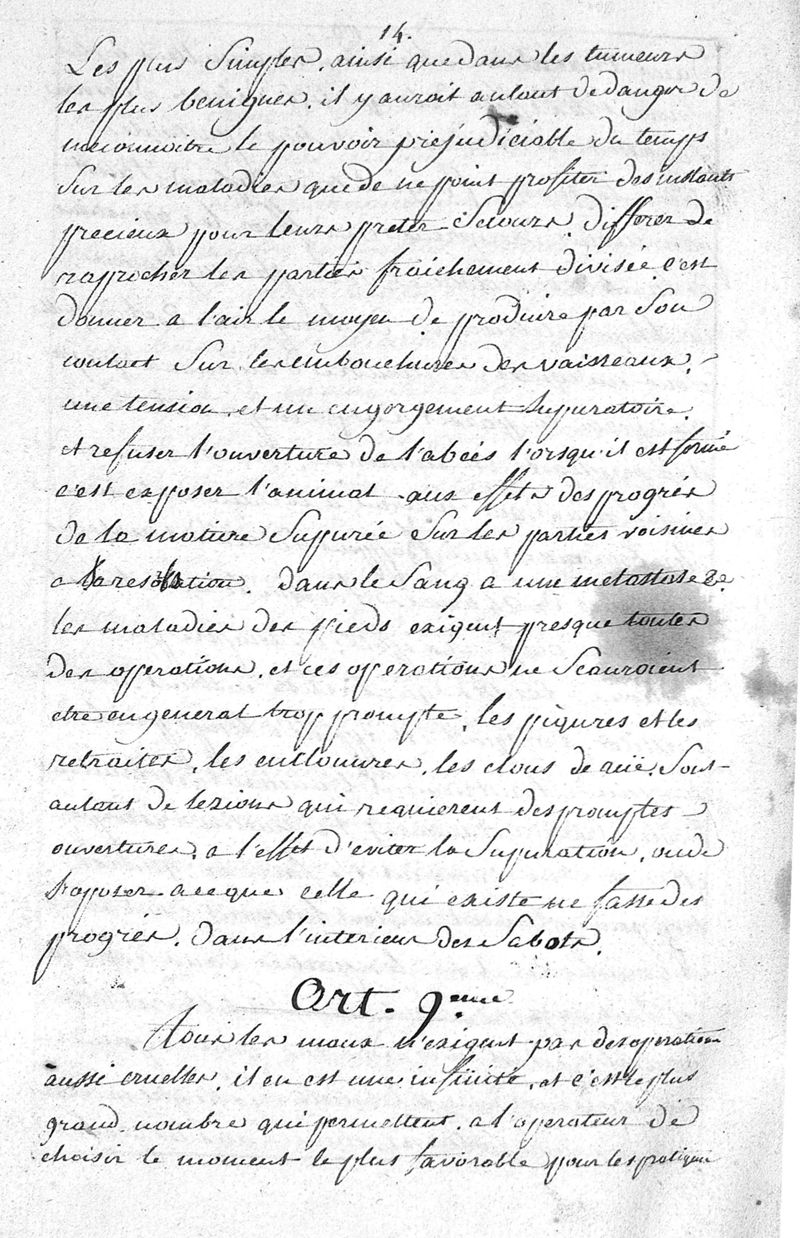 14.
Les plus Simples, ainsi que dans les tumeurs
les plus benignes, il y auroit autant de danger de
meconnoitre le pouvoir prejudiciable du temps
Sur les maladies que de ne point profiter des instants
precieux pour leurs preter Secours. differer de
raprocher les parties fraichement divisée c'est
donner a l'air le moyen de produire par Son
contact Sur les embouchures des vaisseaux,
une tension, et un engorgement Supuratoire,
et refuser l'ouverture de l'abcés lorsqu'il est formé
c'est exposer l'animal aux effets des progrés
de la matiere Supurée Sur les parties voisines
a dans le Sang a une metastase &a
les maladies des pieds exigent presque toutes
des operations, et ces operations ne Scauroient
etre en general trop prompte, les piqures et les
retraites, les enclouures, les clous de rüe, Sont
autant de lezions qui requierent des promptes
ouvertures, a l'effet d'eviter la Supuration, ou de
S'oposer a ce que celle qui existe ne fasse des
progrés, dans l'interieur des Sabots.
Art. 9.eme
Tous les maux n'exigent pas des operations
aussi cruelles, il en est une infinité, et c'est le plus
grand nombre qui permettent, a l'operateur de
choisir le moment le plus favorable pour les pratiquer